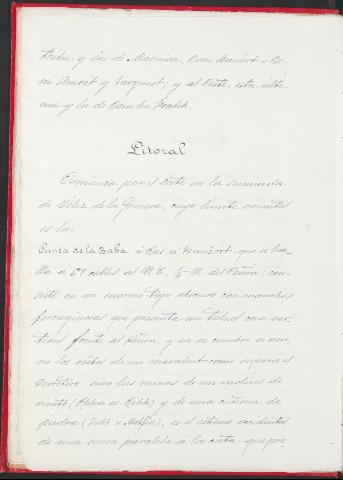 tribu, y las de Masnisa, Beni
ni y Targuist, y al Oeste, esta últi-
ma y la de Beni bu Frahh.
Litoral
Comienza por el Oeste en la ensenada
de Vélez de la Gomera, cuyo límite oriental
es la
Punta de la Baba ó Ras n' que se ha-
lla a 6'1 cables al N.E. ½ N. del Peñón; con-
siste en un enorme tajo obscuro con manchas
ferruginosas que presenta un talud casi ver-
tical frente al Peñón, y en su cumbre se ven,
no los restos de un marabut como supone el
Derrotero, sino las ruinas de un molino de
viento y de una cisterna de
piedra es el extremo occidental
de una sierra paralela á la costa que pre-